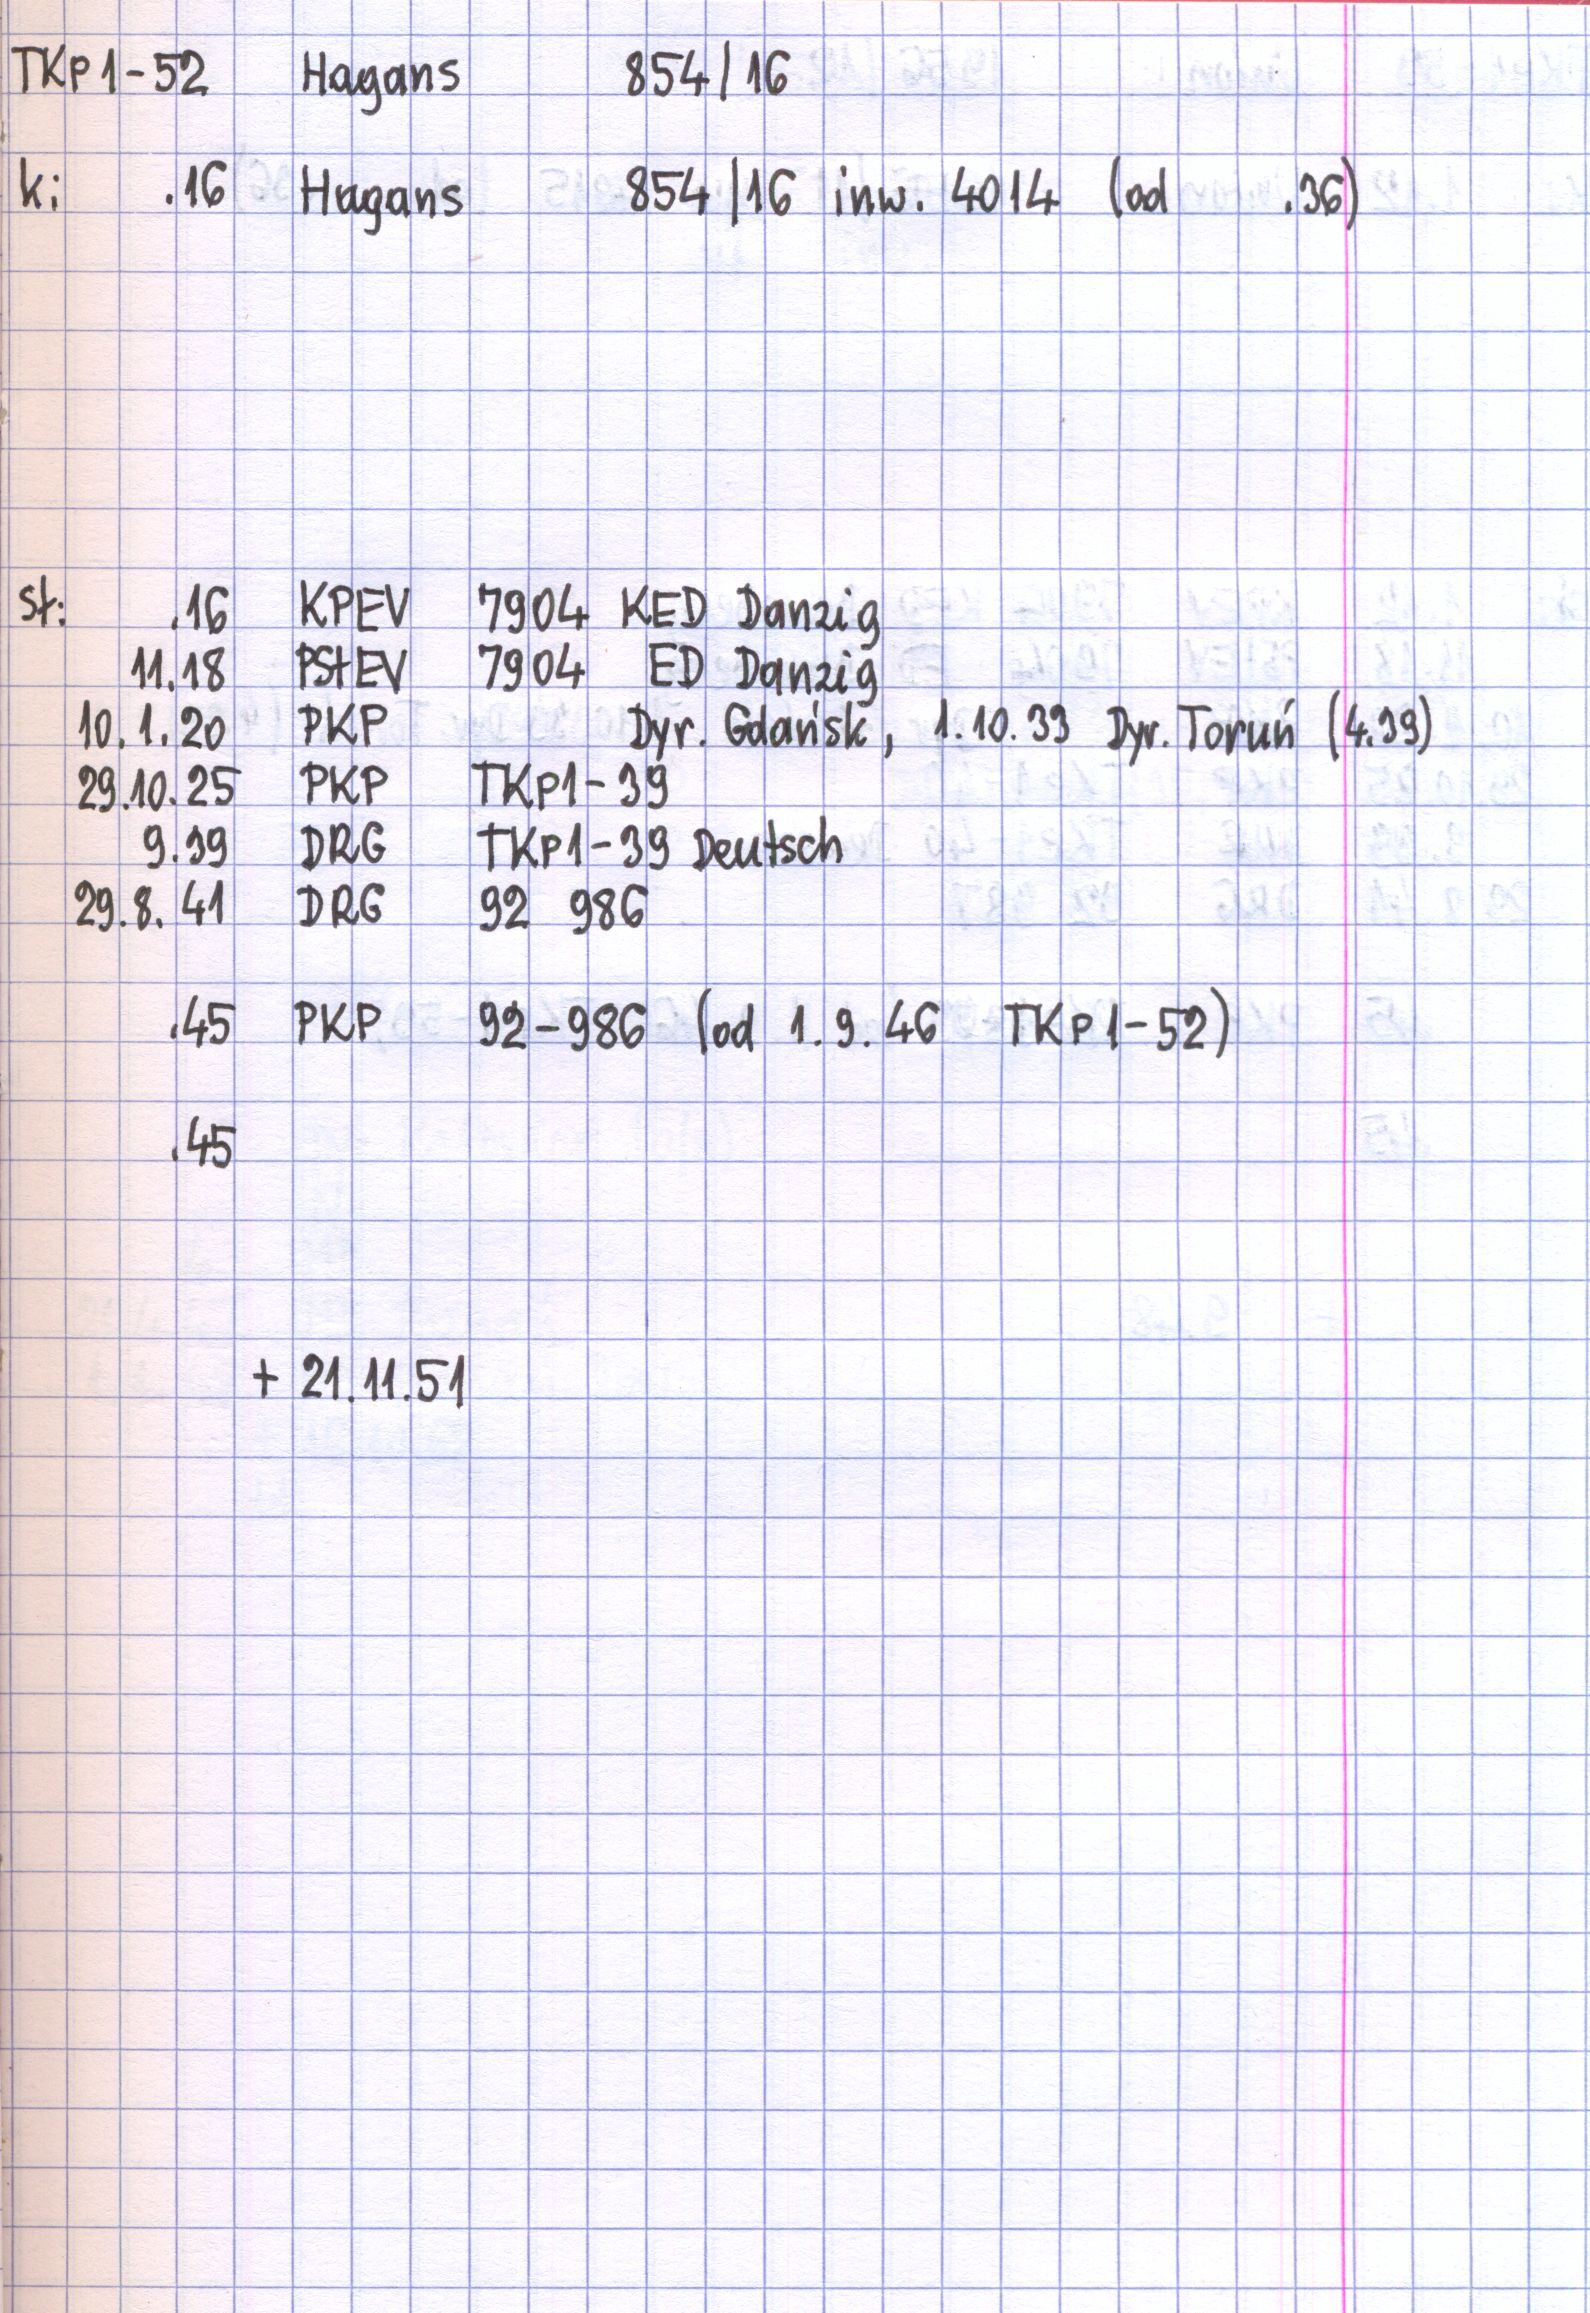 TKp1-52 Hagans 854/16
k: .16 Hagans 854/16 inw. 4014 (od .36)
st: .16 KPEV 7904 KED Danzig
11.18 PStEV 7904 ED Danzig
10.1.20 PKP Dyr. Gdańsk, 1.10.33 Dyr. Toruń (4.39)
29.10.25 PKP TKp1-39
9.39 DRG TKp1-39 Deutsch
29.8.41 DRG 92 986
.45 PKP 92-986 (od 1.9.46 TKp1-52)
.45
+ 21.11.51